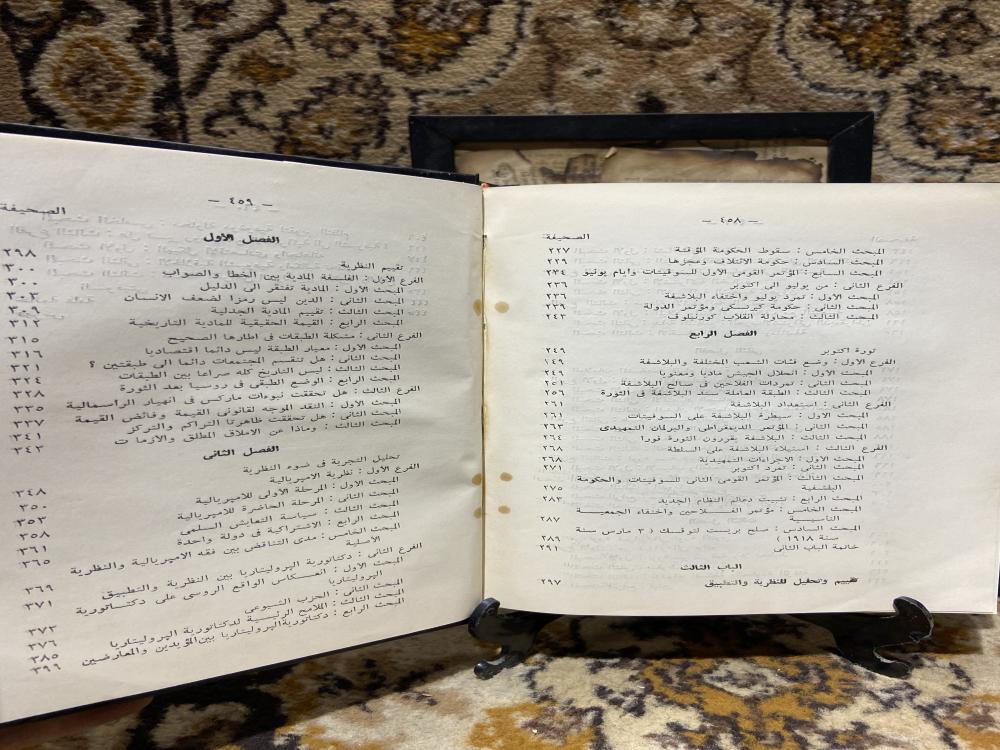 — ٤٥٨ —
الصحيفة
المبحث الخامس : سقوط الحكومة المؤقتة ٢٢٧
المبحث السادس : حكومة الائتلاف وعجزها ٢٢٩
المبحث السابع : المؤتمر القومى الاول للسوفيتات وايام يونيو ٢٣٤
الفرع الثانى : من يوليو الى اكتوبر ٢٣٦
المبحث الاول : تمرد يوليو واختفاء البلاشفة ٢٣٦
المبحث الثانى : حكومة كيرنسكى ومؤتمر الدولة ٢٣٩
المبحث الثالث : محاولة انقلاب كورنيلوف ٢٤٣
الفصل الرابع
ثورة اكتوبر ٢٤٩
الفرع الاول : وضع فئات الشعب المختلفة والبلاشفة ١٤٩
المبحث الاول : انحلال الجيش ماديا ومعنويا ٢٤٩
المبحث الثانى : تمردات الفلاحين فى صالح البلاشفة ٢٥١
المبحث الثالث : الطبقة العاملة سند البلاشفة فى الثورة ٢٥٦
الفرع الثانى : استعداد البلاشفة ٢٦١
المبحث الاول : سيطرة البلاشفة على السوفيتات ٢٦١
المبحث الثانى : المؤتمر الديمقراطى والبرلمان التمهيدى ٢٦٣
المبحث الثالث : البلاشفة يقررون الثورة فورا ٢٦٤
الفرع الثالث : استيلاء البلاشفة على السلطة ٢٦٨
المبحث الاول : الاجراءات التمهيدية ٢٦٨
المبحث الثانى : تمرد اكتوبر ٢٧١
المبحث الثالث : المؤتمر القومى الثانى للسوفيتات والحكومة
البلشفية ٢٧٥
المبحث الرابع : تثبيت دعائم النظام الجديد ٢٨٣
المبحث الخامس : مؤتمر الفلاحين واختفاء الجمعية
التأسيسية ٢٨٧
المبحث السادس : صلح بريست لتوفسك ( ٣ مارس سنة
سنة ١٩١٨ ) ٢٨٦
خاتمة الباب الثانى ٢٩١
الباب الثالث
تقييم وتحليل للنظرية والتطبيق ٢٩٧
— ٤٥٩ —
الصحيفة
الفصل الاول
تقييم النظرية ٢٩٨
الفرع الاول : الفلسفة المادية بين الخطأ والصواب ٣٠٠
المبحث الاول : المادية تفتقر الى الدليل ٣٠٠
المبحث الثانى : الدين ليس رمزا لضعف الانسان ٣٠٣
المبحث الثالث : تقييم المادية الجدلية ٣٠٩
المبحث الرابع : القيمة الحقيقية للمادية التاريخية ٣١٢
الفرع الثانى : مشكلة الطبقات فى اطارها الصحيح ٣١٥
المبحث الاول : معيار الطبقة ليس دائما اقتصاديا ٣١٦
المبحث الثانى : هل تنقسم المجتمعات دائما الى طبقتين ؟ ٣٢١
المبحث الثالث : ليس التاريخ كله صراعا بين الطبقات ٣٢٤
المبحث الرابع : الوضع الطبقى فى روسيا بعد الثورة ٣٢٨
الفرع الثالث : هل تحققت نبوءات ماركس فى انهيار الراسمالية ٣٣٥
المبحث الاول : النقد الموجه لقانونى القيمة وفائض القيمة ٣٣٧
المبحث الثانى : هل تحققت ظاهرتا التراكم والتركز ٣٤١
المبحث الثالث : وماذا عن الاملاق المطلق والازما ت ٣٤٢
الفصل الثانى
تحليل التجربة فى ضوء النظرية
الفرع الاول : نظرية الامبريالية ٣٤٨
المبحث الاول : المرحلة الأولى للامبريالية ٣٥٠
المبحث الثانى : المرحلة الحاضرة للامبريالية ٣٥٢
المبحث الثالث : سياسة التعايش السلمى ٣٥٨
المبحث الرابع : الاشتراكية فى دولة واحدة ٣٦١
المبحث الخامس : مدى التناقض بين فقه الامبريالية والنظرية ٣٦٥
الأصلية
الفرع الثانى : دكتاتورية البروليتاريا بين النظرية والتطبيق ٣٦٩
المبحث الاول : انعكاس الواقع الروسى على دكتاتورية ٣٧١
البروليتاريا
المبحث الثانى : الحزب الشيوعى ٣٧٣
المبحث الثالث : الملامح الرئيسية لدكتاتورية البروليتاريا ٣٧٦
المبحث الرابع : دكتاتورية البروليتاريا بين المؤيدين والمعارضين ٣٨٥
٣٩٩